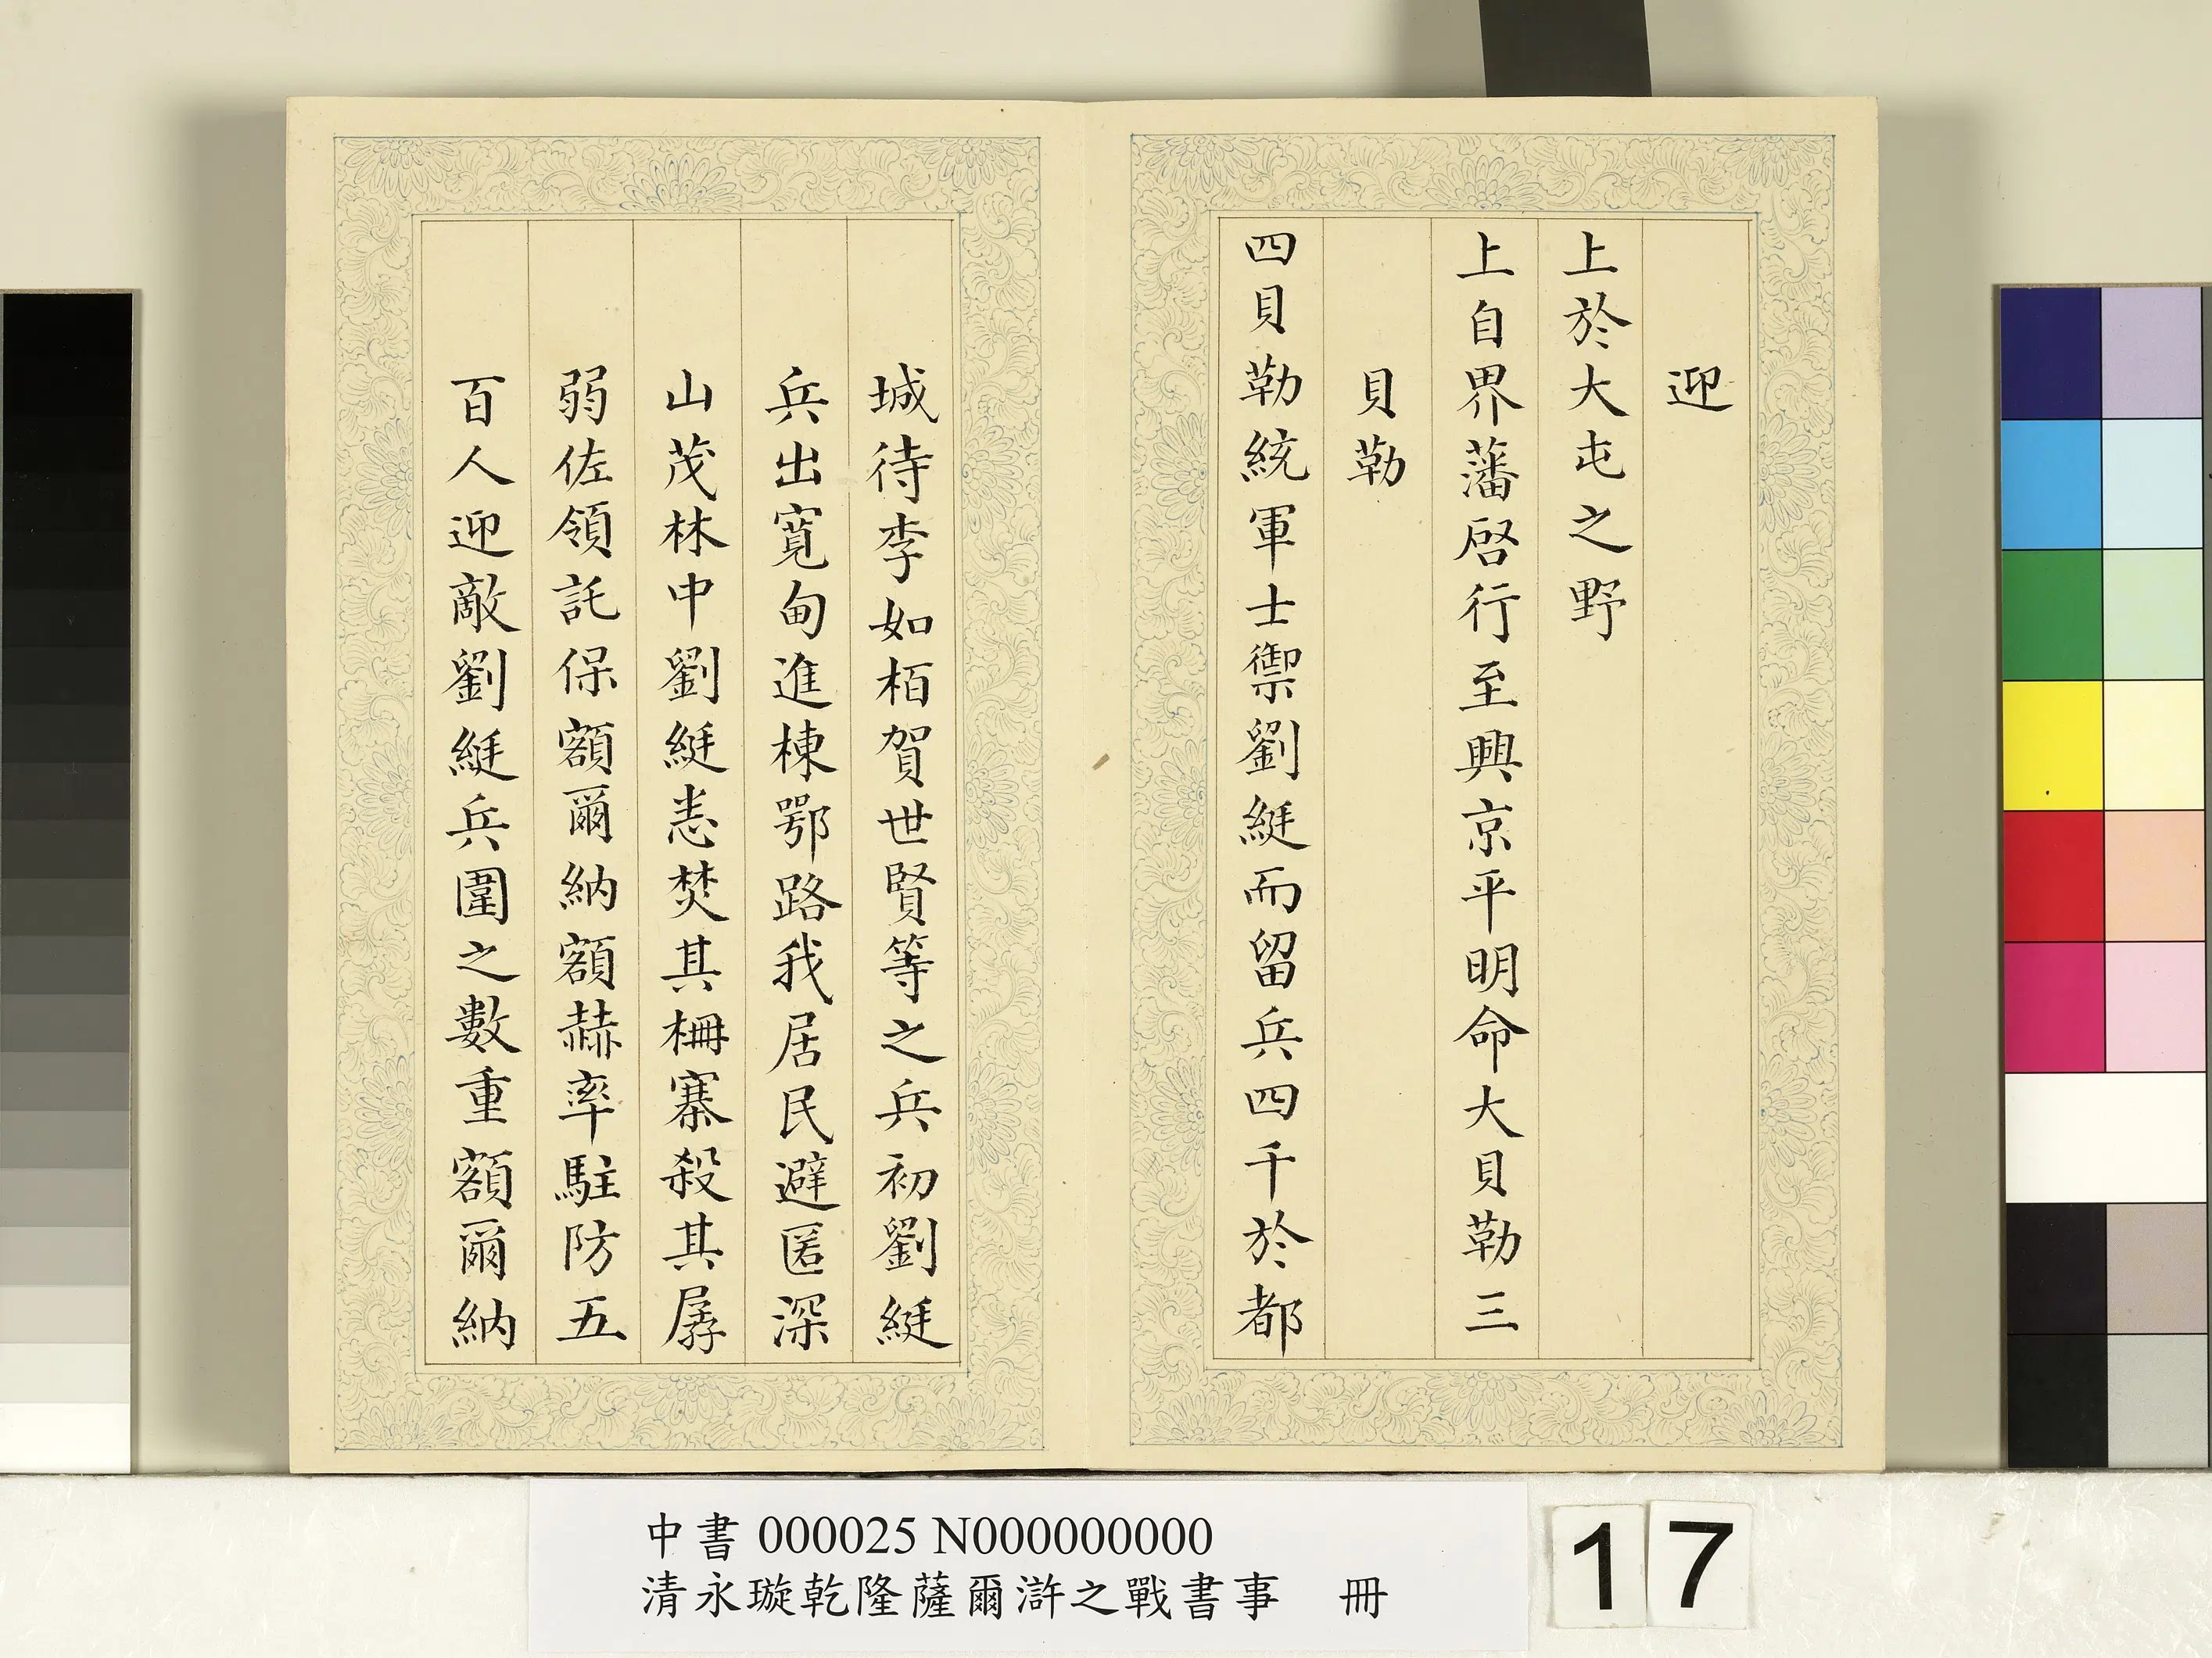 迎
上於大屯之野
上自界藩啓行至興京平明命大貝勒三
貝勒
四貝勒統軍士禦劉綎而留兵四千於都
城待李如栢賀世賢等之兵初劉綎
兵出寬甸進棟鄂路我居民避匿深
山茂林中劉綎悉焚其柵寨殺其孱
弱佐領託保額爾納額赫率駐防五
百人迎敵劉綎兵圍之數重額爾納
中書 000025 N000000000
清永璇乾隆薩爾滸之戰書事 冊
17